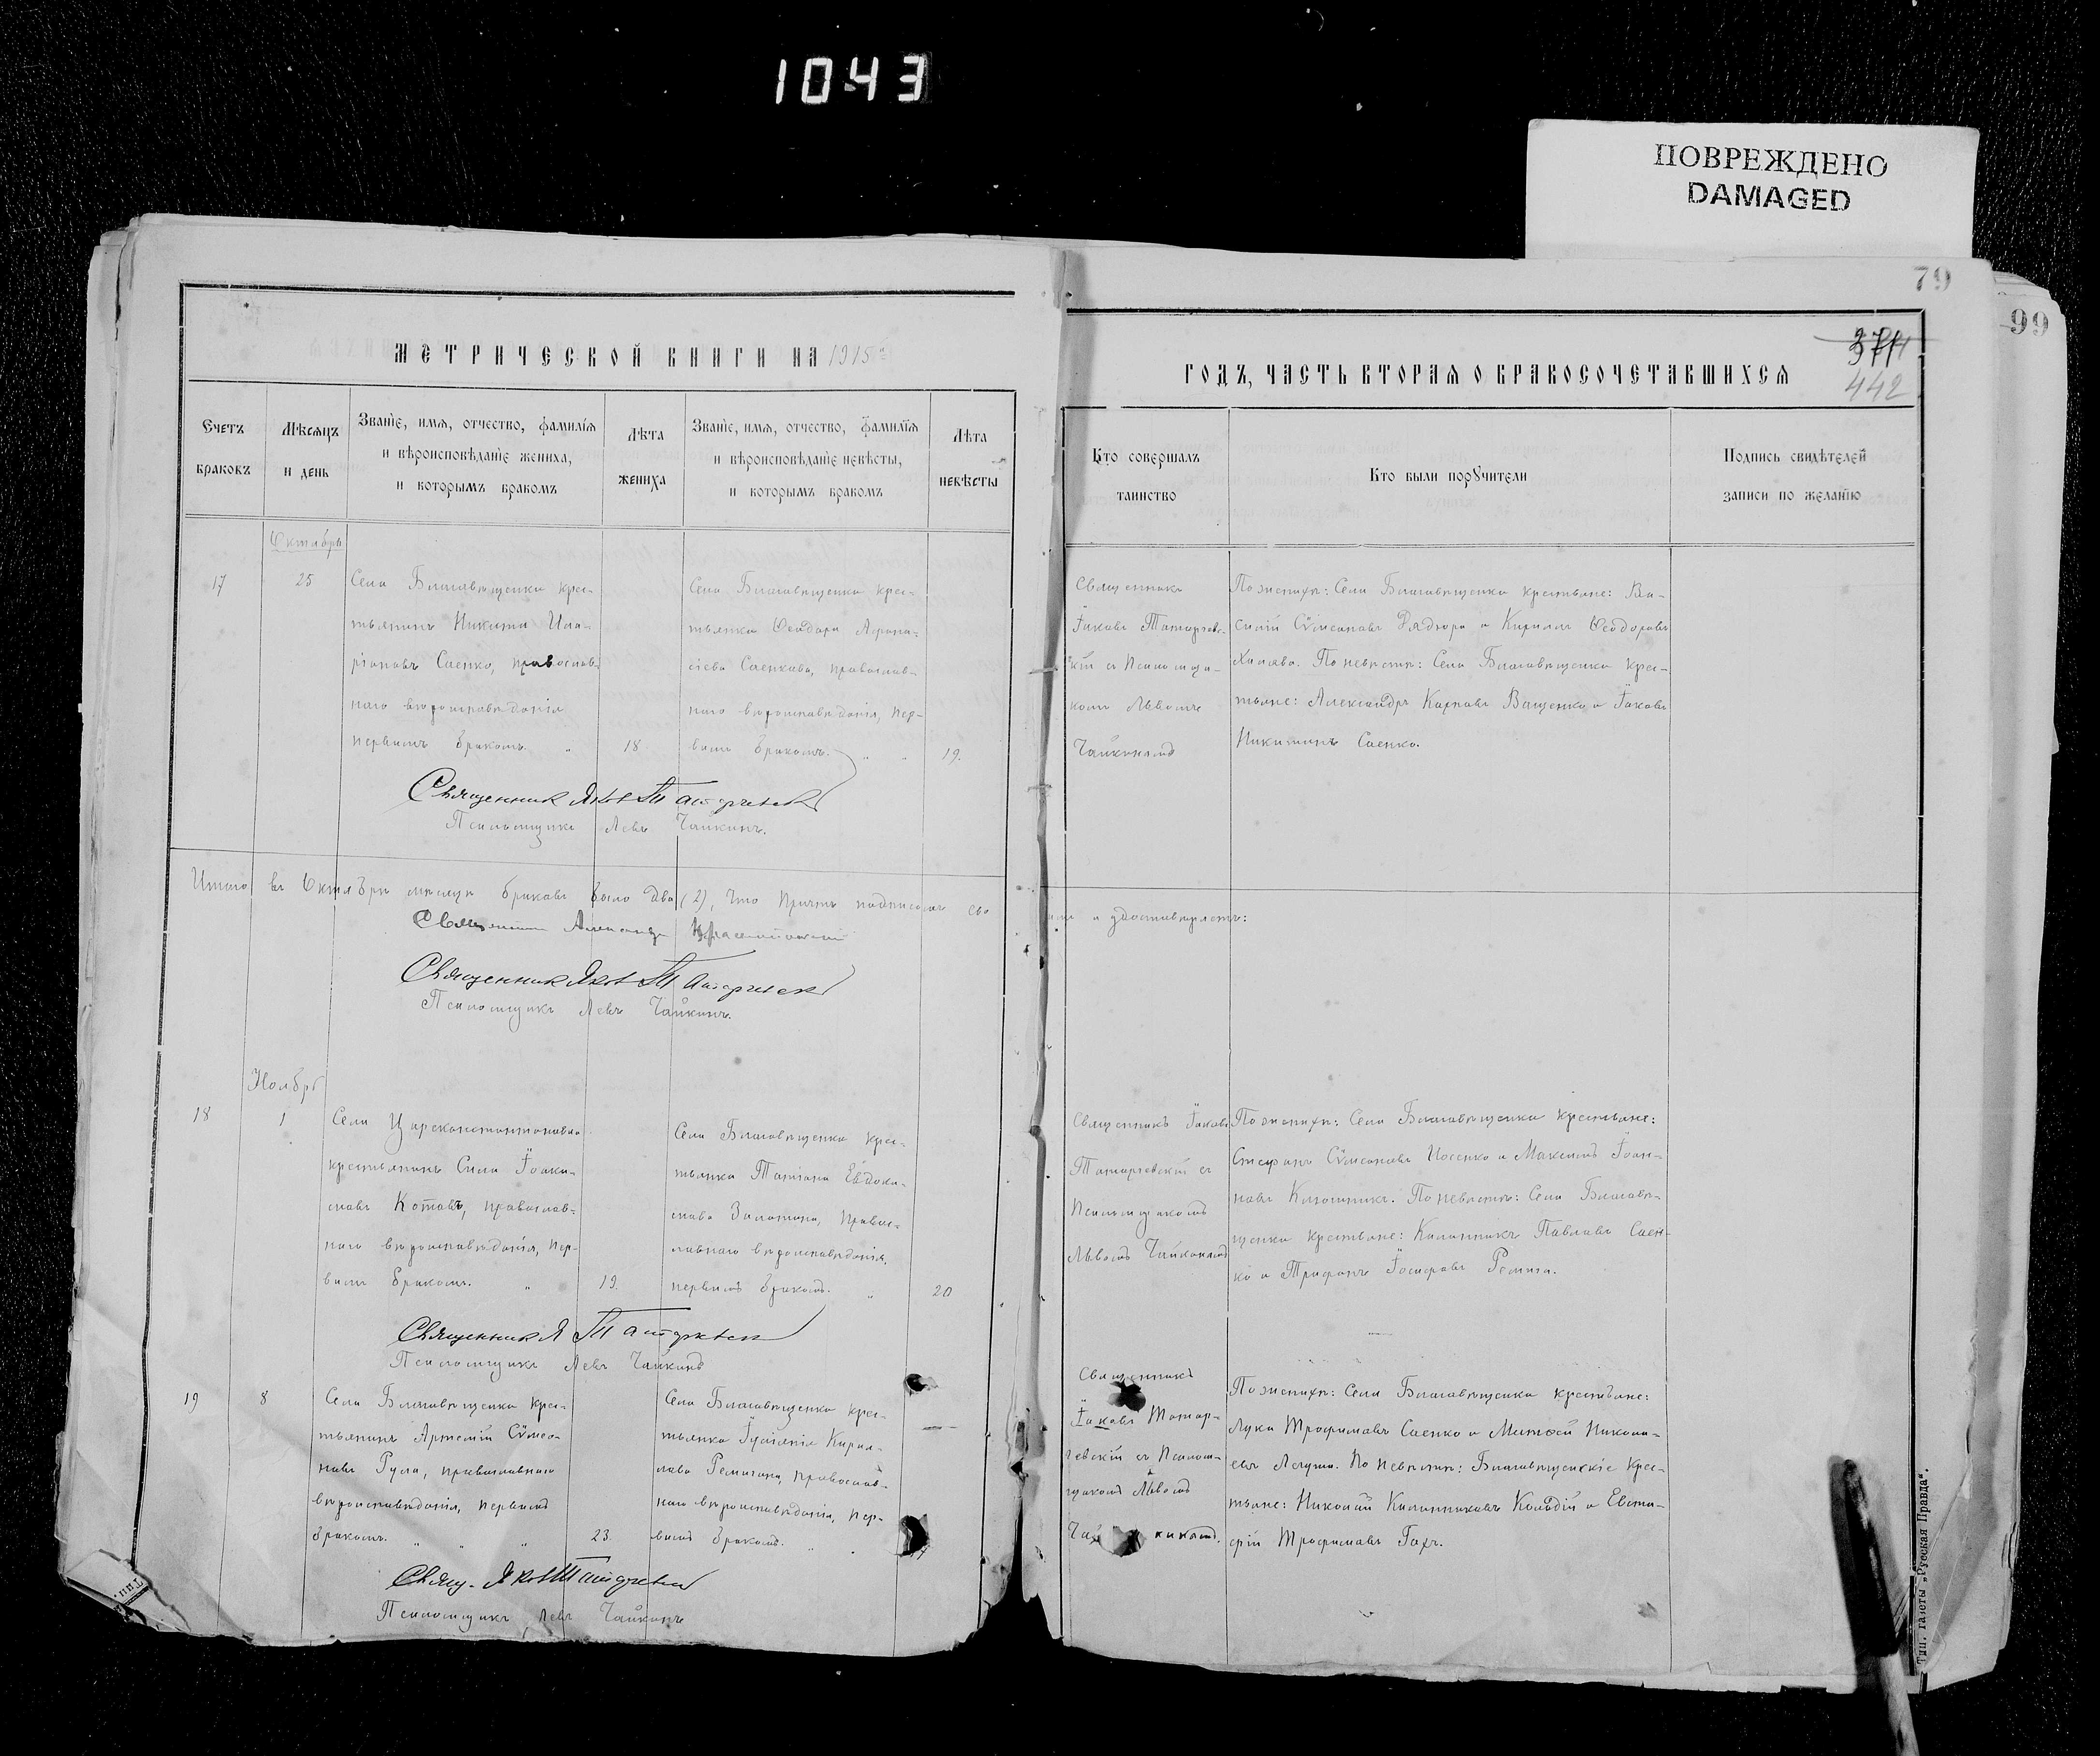 1043
ПОВРЕЖДЕНО
DAMAGED
79
99
374
442
МЕТРИЧЕСКОЙ КНИГИ НА 1915 й
ГОДЪ, ЧАСТЬ ВТОРАЯ О БРАКОСОЧЕТАВШИХСЯ
Счетъ браковъ
Мѣсяцъ и день
Званіе, имя, отчество, фамилія
и вѣроисповѣданіе жениха,
и которымъ бракомъ
Лѣта жениха
Званіе, имя, отчество, фамилія
и вѣроисповѣданіе невѣсты,
и которымъ бракомъ
Лѣта невѣсты
Кто совершалъ
таинство
Кто были поручители
Подпись свидѣтелей
записи по желанію
Октябрь
17
25
Села Благовѣщенки крес-
тьянинъ Никита Ила-
ріоновъ Саенко, православ-
наго вѣроисповѣданія
первымъ бракомъ. "
18
Села Благовѣщенки крес-
тьянка Ѳеодора Аѳана-
сіева Саенкова, православ-
наго вѣроисповѣданія, пер-
вымъ бракомъ. " "
19.
Священникъ
Іаковъ Татарчевс-
кій съ Псаломщи-
комъ Львомъ
Чайкинымъ
По женихѣ: Села Благовѣщенки крестьяне: Ва-
силій Сѵмеоновъ Рядюра и Кириллъ Ѳеодоровъ
Халява. По невѣстѣ: Села Благовѣщенки крес-
тьяне: Александръ Карповъ Ващенко и Іаковъ
Никитинъ Саенко.
Священник Яков Татарчевск
Псаломщикъ Левъ Чайкинъ.
Итого въ Октябрѣ мѣсяцѣ браковъ было два (2), что причтъ подписомъ сво
имъ и удостовѣряетъ:
Священник Александр
Священник Яков Татарчевск
Псаломщикъ Левъ Чайкинъ.
Ноябрь
18
1
Села Цареконстантиновка
крестьянинъ Сила Іоаки-
мовъ Котовъ, православ-
наго вѣроисповѣданія, пер-
вымъ бракомъ. "
19.
Села Благовѣщенки крес-
тьянка Татіана Евдоки-
мова Золотина, правос-
лавнаго вѣроисповѣданія,
первымъ бракомъ. "
20
Священникъ Іаковъ
Татарчевскій съ
Псаломщикомъ
Львомъ Чайкинымъ
По женихѣ: Села Благовѣщенки крестьяне:
Стефанъ Сѵмеоновъ Носенко и Максимъ Іоан-
новъ Калашникъ. По невѣстѣ: Села Благовѣ-
щенки крестьяне: Каллиникъ Павловъ Саен-
ко и Трифонъ Іосифовъ Ремига.
Священник Я Татарчевск
Псаломщикъ Левъ Чайкинъ
19
8
Села Благовѣщенки крес-
тьянинъ Артемій Сѵмео-
новъ Гула, православнаго
вѣроисповѣданія, первымъ
бракомъ. " " "
23.
Села Благовѣщенки крес-
тьянка Іуліянія Кирил-
лова Ремигина, православ-
наго вѣроисповѣданія, пер-
вымъ бракомъ. " "
Священникъ
Іаковъ Татар-
чевскій съ Псалом-
щикомъ Львомъ
Чайкинымъ.
По женихѣ: Села Благовѣщенки крестьяне:
Лука Трофимовъ Саенко и Матѳей Никола-
евъ Легуша. По невѣстѣ: Благовѣщенскіе крес-
тьяне: Николай Каллиниковъ Колодій и Евста-
фій Трофимовъ Гахъ.
Свящ. Яков Татарчевск
Псаломщикъ Левъ Чайкинъ
Тип.
Тип. газеты „Русская Правда“.